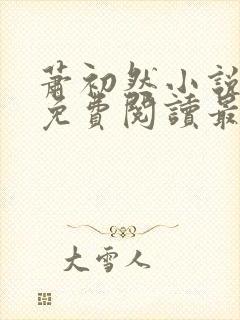 蕭初然小說
免費閱讀最
大雪人